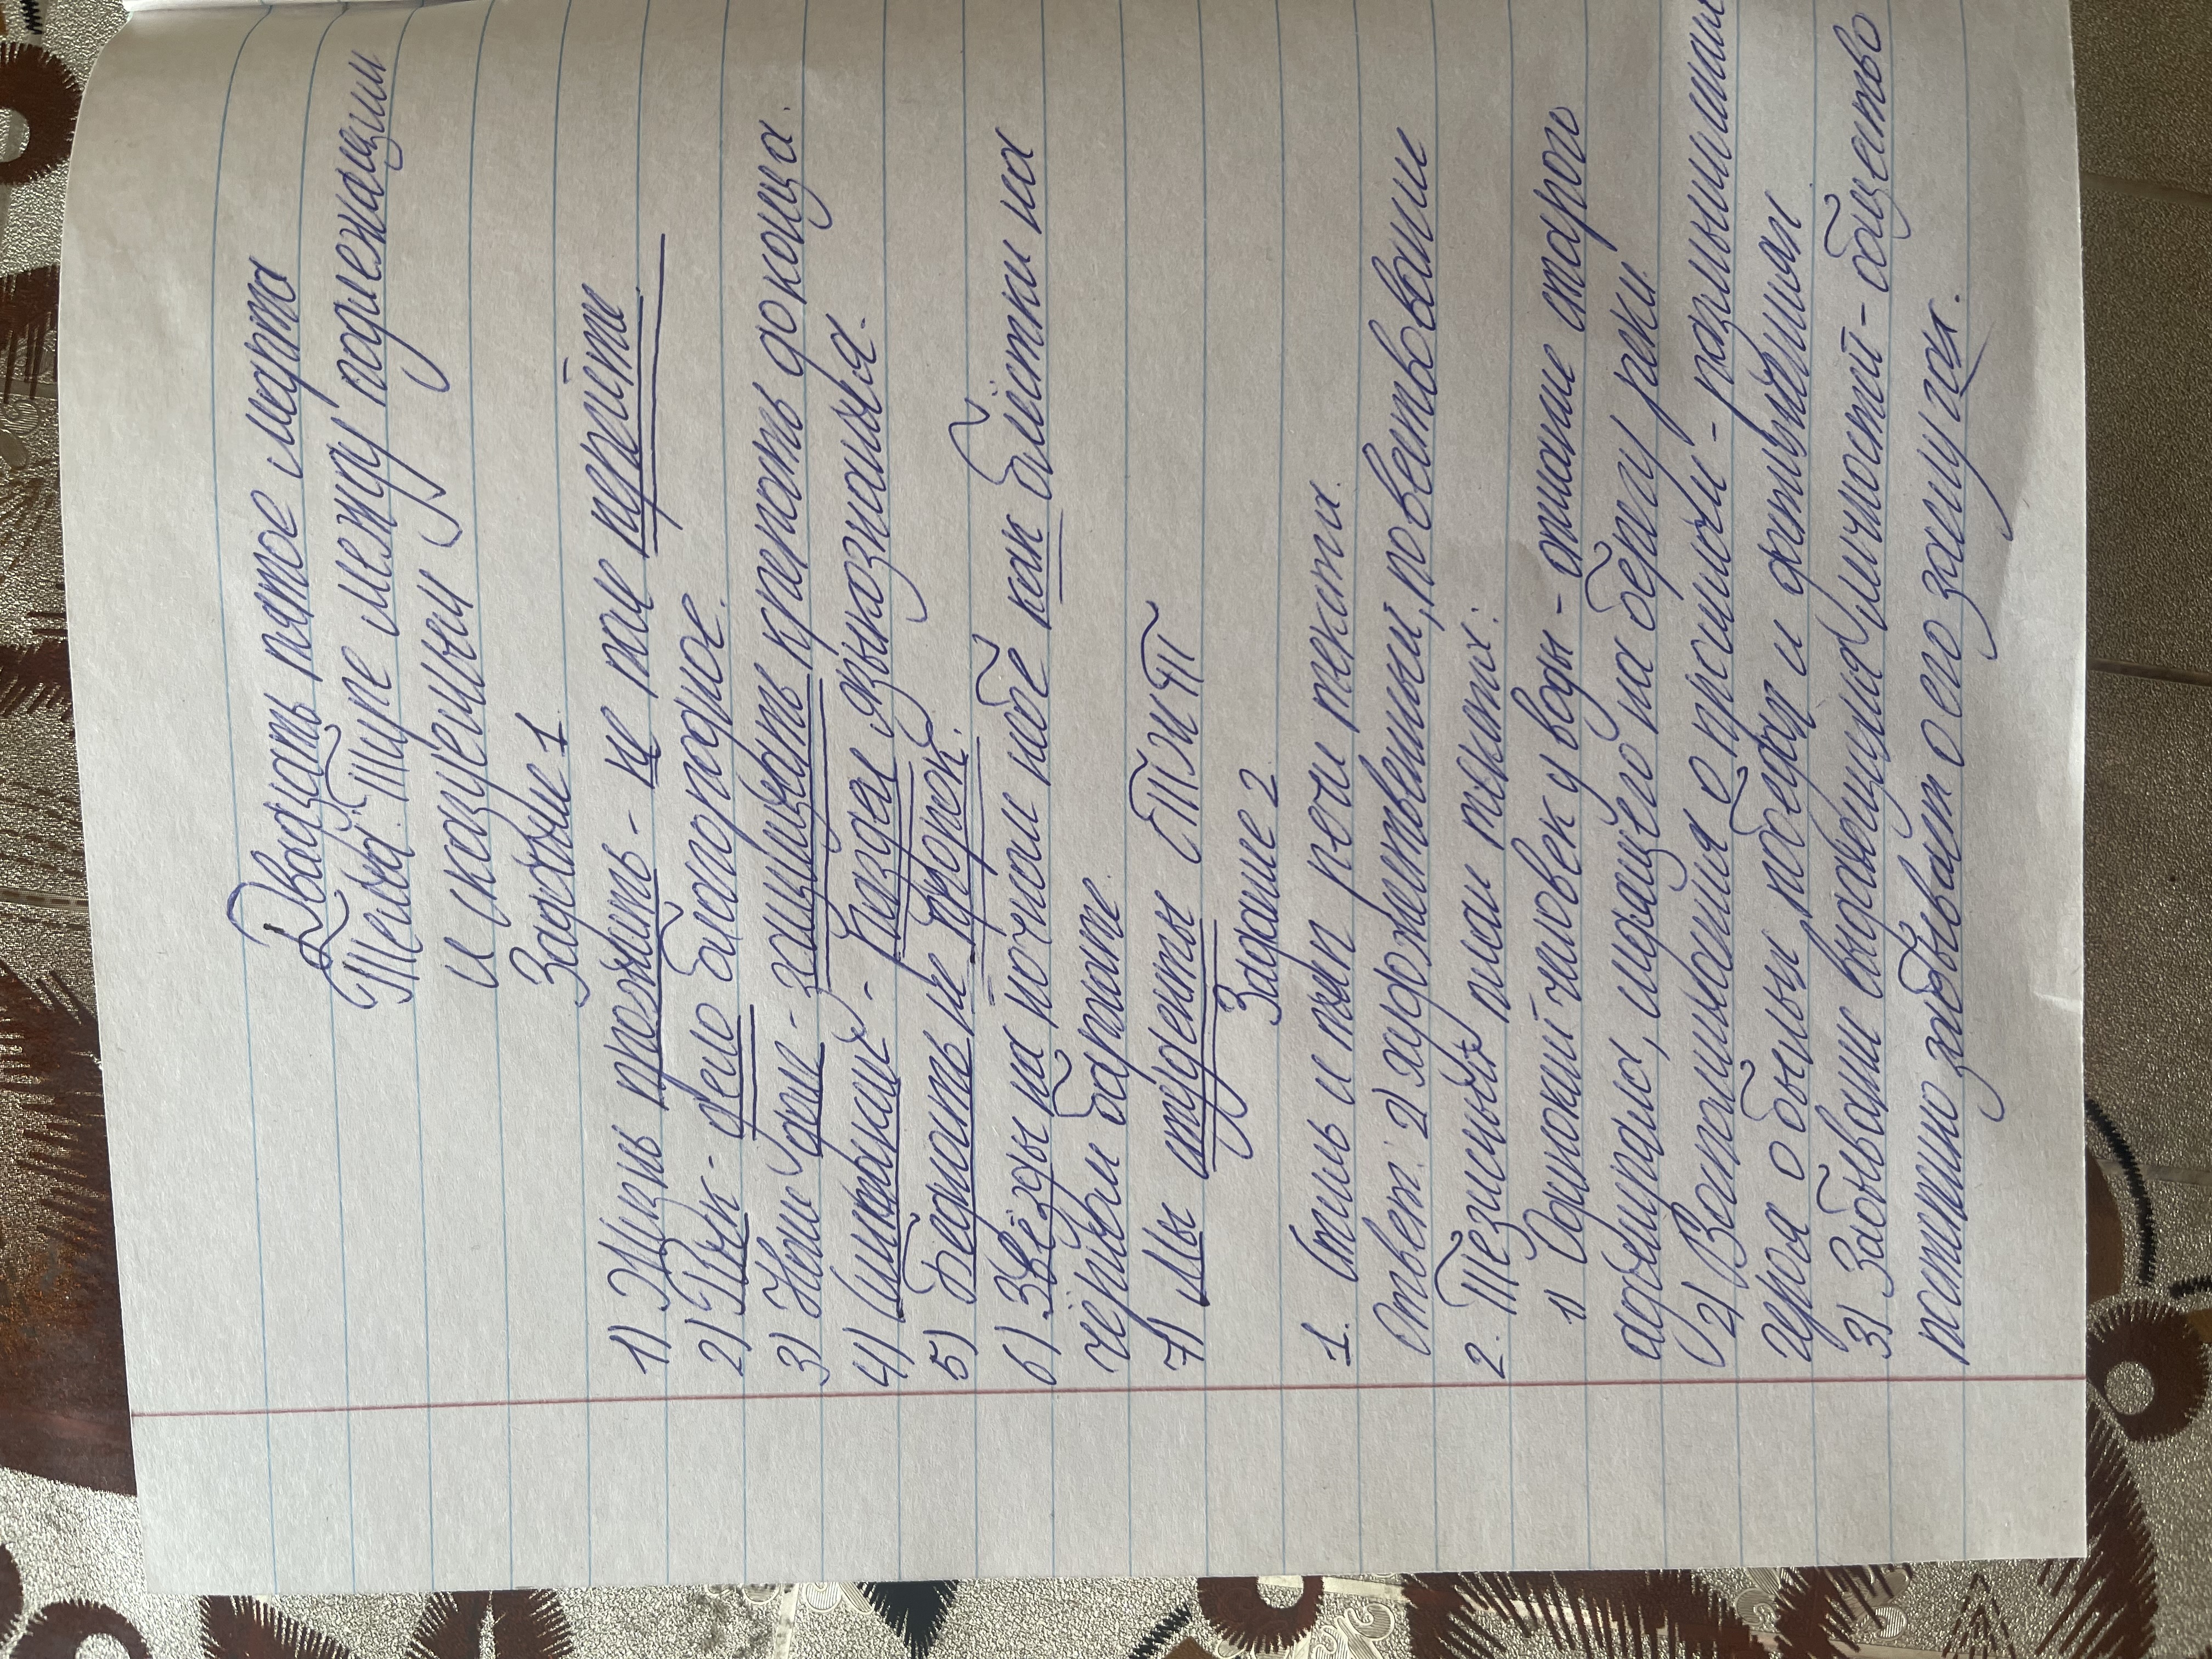 Двадцать пятое марта
Тема: Тире между подлежащим
и сказуемым
Задание 1
1) Жизнь прожить - не поле перейти
2) Полк - дело благородное.
3) Наш долг - защищать крепость до конца.
4) Синтаксис - раздел языкознания.
5) Бедность не порок.
6) Звёзды на ночном небе как блёстки на
чёрном бархате
7) Мы студенты СТЖТ
Задание 2
1. Стиль и тип речи текста.
Ответ: 2) художественный, повествование
2. Тезисный план текста:
1) Одинокий человек у воды - описание старого
адмирала, сидящего на берегу реки
2) Воспоминания о прошлом - размышления
героя о былых победах и
3) Забвение выдающихся личностей - общество
постепенно забывает о его заслугах.